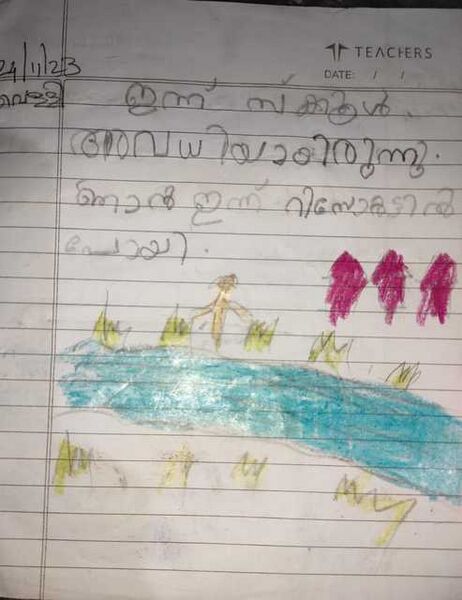 TEACHERS
DATE: / /
24/11/23
വെള്ളി
ഇന്ന് സ്കൂൾ.
അവധിയായിരുന്നു.
ഞാൻ ഇന്ന് റിസോർട്ടിൽ
പോയി.